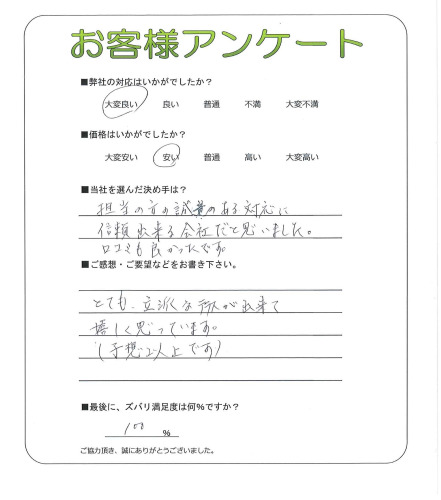 お客様アンケート
■弊社の対応はいかがでしたか?
大変良い 良い 普通 不満 大変不満
■価格はいかがでしたか?
大変安い 安い 普通 高い 大変高い
■当社を選んだ決め手は?
担当の方の誠意のある対応に
信頼出来る会社だと思いました。
口コミも良かったです。
■ご感想・ご要望などをお書き下さい。
とても、立派な が出来て
嬉しく思っています。
(予想以上です)
■最後に、ズバリ満足度は何%ですか?
100 %
ご協力頂き、誠にありがとうございました。